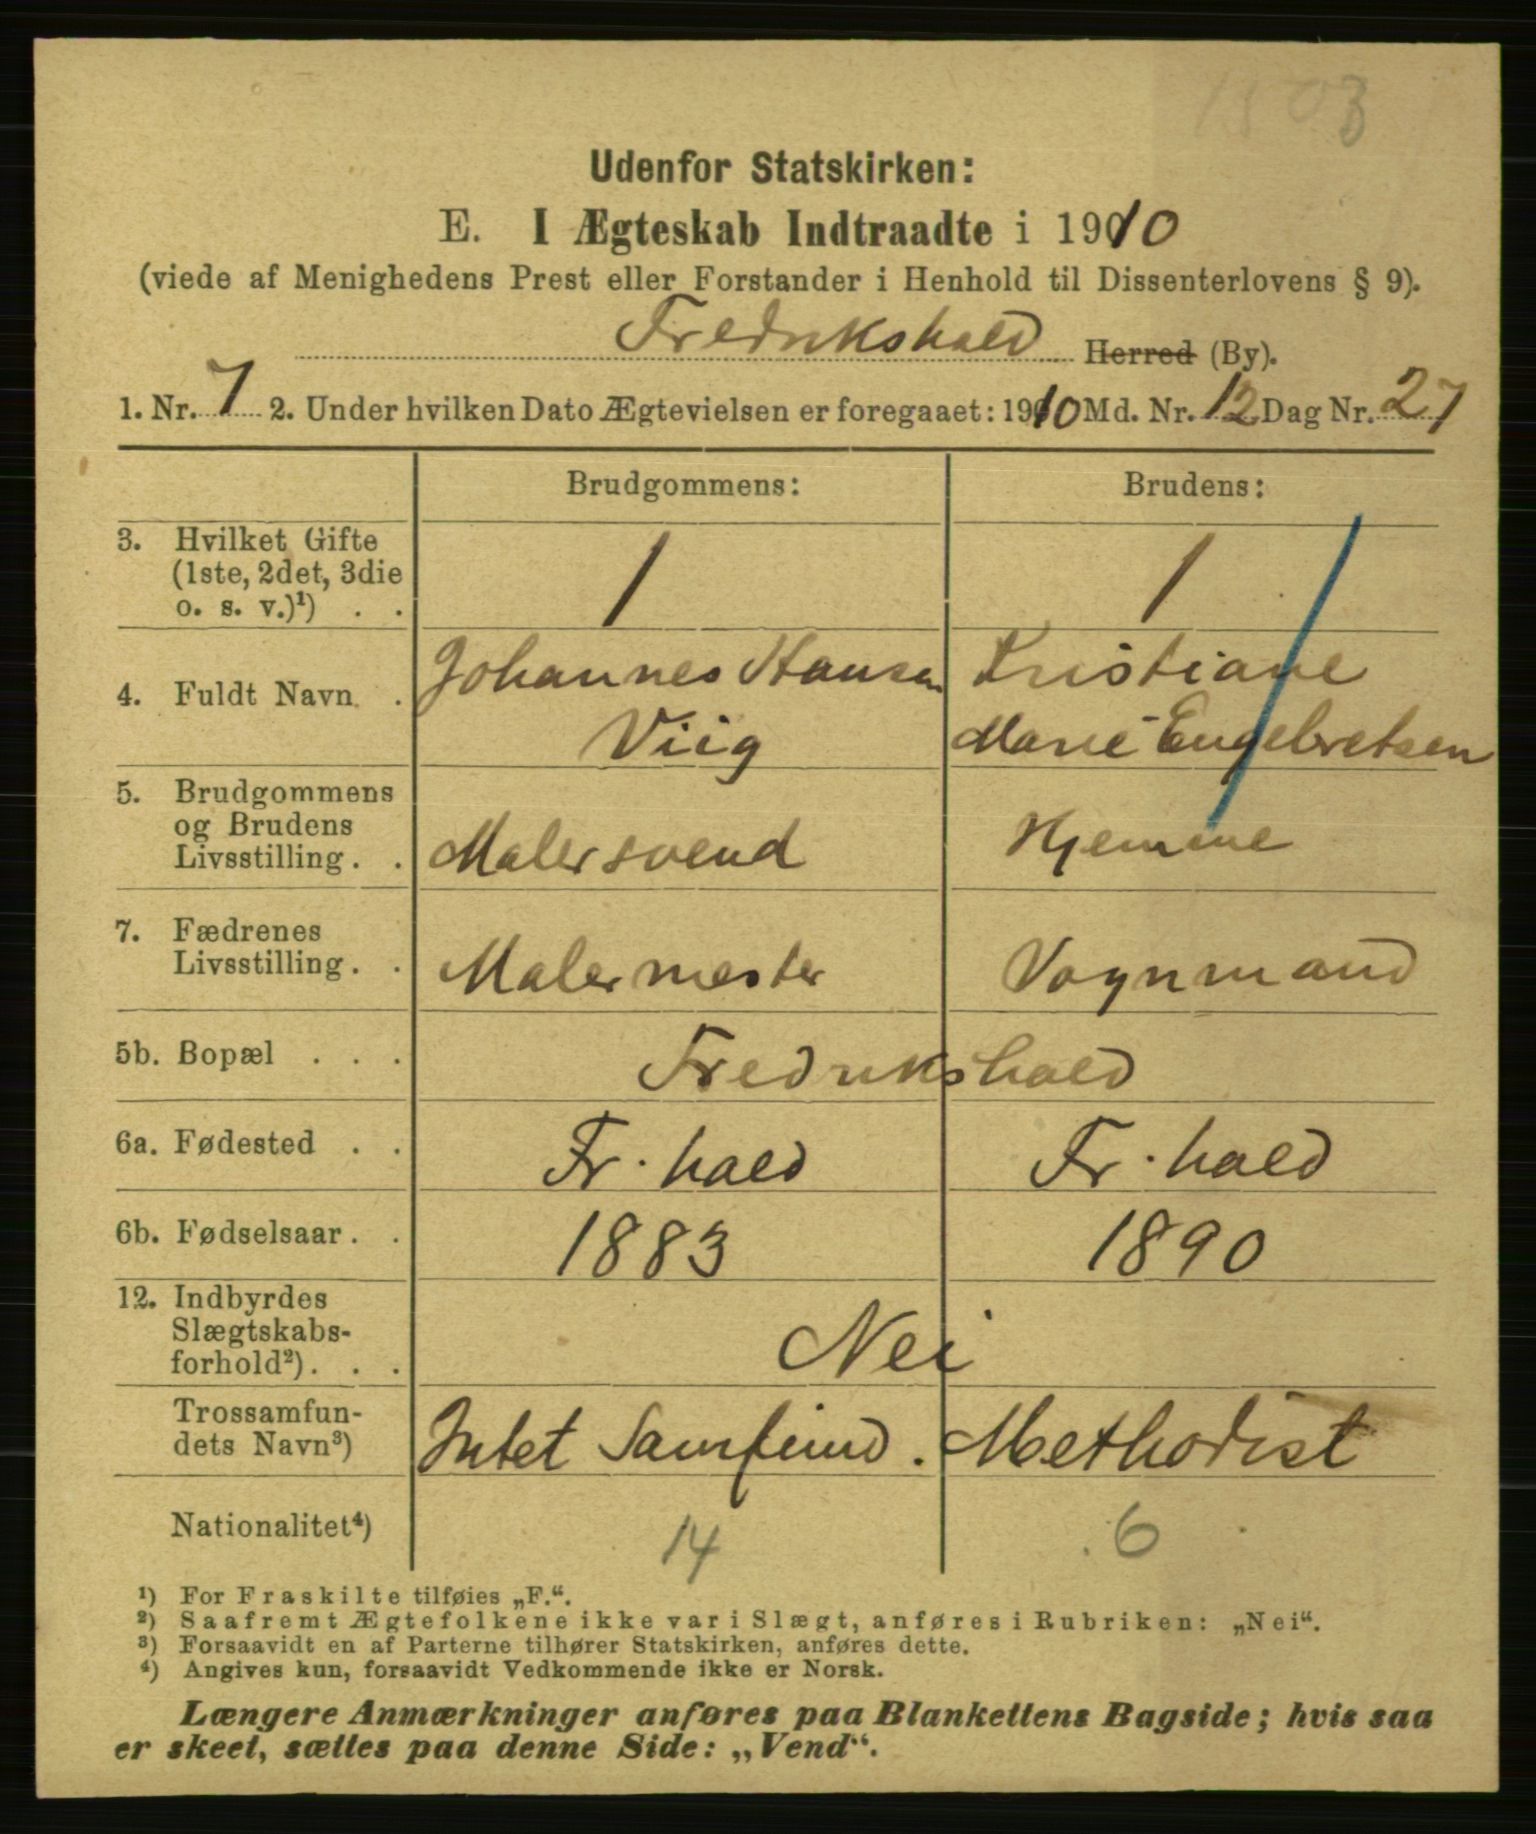 1503
Udenfor Statskirken:
E. I Ægteskab Indtraadte i 1910
(viede af Menighedens Prest eller Forstander i Henhold til Dissenterlovens § 9).
Fredrikshald Herred (By).
1. Nr. 7 2. Under hvilken Dato Ægtevielsen er foregaaet: 1910 Md. Nr. 12 Dag Nr. 27
Brudgommens: Brudens:
3. Hvilket Gifte
(1ste, 2det, 3die
o. s. v.)¹) . . 1 1
4. Fuldt Navn . Johannes Hansen Kristiane
Viig Marie Engebretsen
5. Brudgommens
og Brudens
Livsstilling. . Malersvend Hjemme
7. Fædrenes
Livsstilling. . Malermester Vognmand
5b. Bopæl . . . Fredrikshald
6a. Fødested . . Fr. hald Fr. hald
6b. Fødselsaar. . 1883 1890
12. Indbyrdes
Slægtskabs-
forhold²). . . Nei
Trossamfun-
dets Navn³) Intet Samfund. Methodist
Nationalitet⁴) 14 6
¹) For Fraskilte tilføies „F.“.
²) Saafremt Ægtefolkene ikke var i Slægt, anføres i Rubriken: „Nei“.
³) Forsaavidt en af Parterne tilhører Statskirken, anføres dette.
⁴) Angives kun, forsaavidt Vedkommende ikke er Norsk.
Længere Anmærkninger anføres paa Blankettens Bagside; hvis saa
er skeet, sættes paa denne Side: „Vend“.